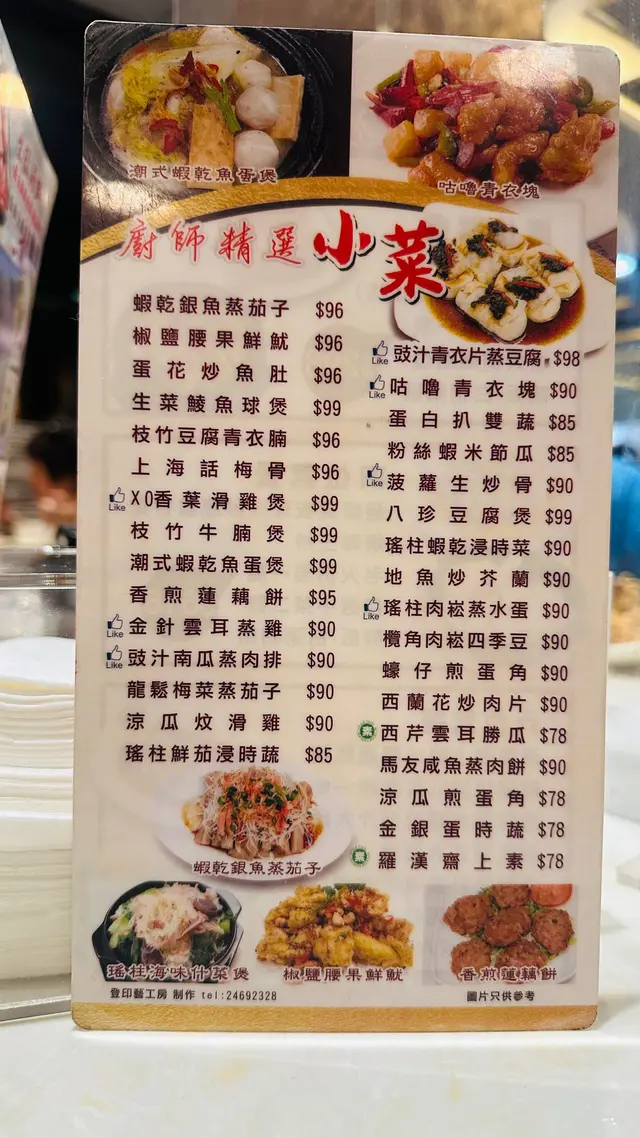 潮式蝦乾魚蛋煲
咕嚕青衣塊
廚師精選小菜
蝦乾銀魚蒸茄子 $96
椒鹽腰果鮮魷 $96
蛋花炒魚肚 $96
生菜鯪魚球煲 $99
枝竹豆腐青衣腩 $96
上海話梅骨 $96
Like XO香葉滑雞煲 $99
枝竹牛腩煲 $99
潮式蝦乾魚蛋煲 $99
香煎蓮藕餅 $95
Like 金針雲耳蒸雞 $90
Like 豉汁南瓜蒸肉排 $90
龍鬆梅菜蒸茄子 $90
涼瓜炆滑雞 $90
瑤柱鮮茄浸時蔬 $85
Like 豉汁青衣片蒸豆腐 $98
Like 咕嚕青衣塊 $90
蛋白扒雙蔬 $85
粉絲蝦米節瓜 $85
Like 菠蘿生炒骨 $90
八珍豆腐煲 $99
瑤柱蝦乾浸時菜 $90
地魚炒芥蘭 $90
Like 瑤柱肉崧蒸水蛋 $90
欖角肉崧四季豆 $90
蠔仔煎蛋角 $90
西蘭花炒肉片 $90
素 西芹雲耳勝瓜 $78
馬友咸魚蒸肉餅 $90
涼瓜煎蛋角 $78
金銀蛋時蔬 $78
素 羅漢齋上素 $78
蝦乾銀魚蒸茄子
瑤柱海味什菜煲
椒鹽腰果鮮魷
香煎蓮藕餅
登印藝工房 制作 tel:24692328
圖片只供參考